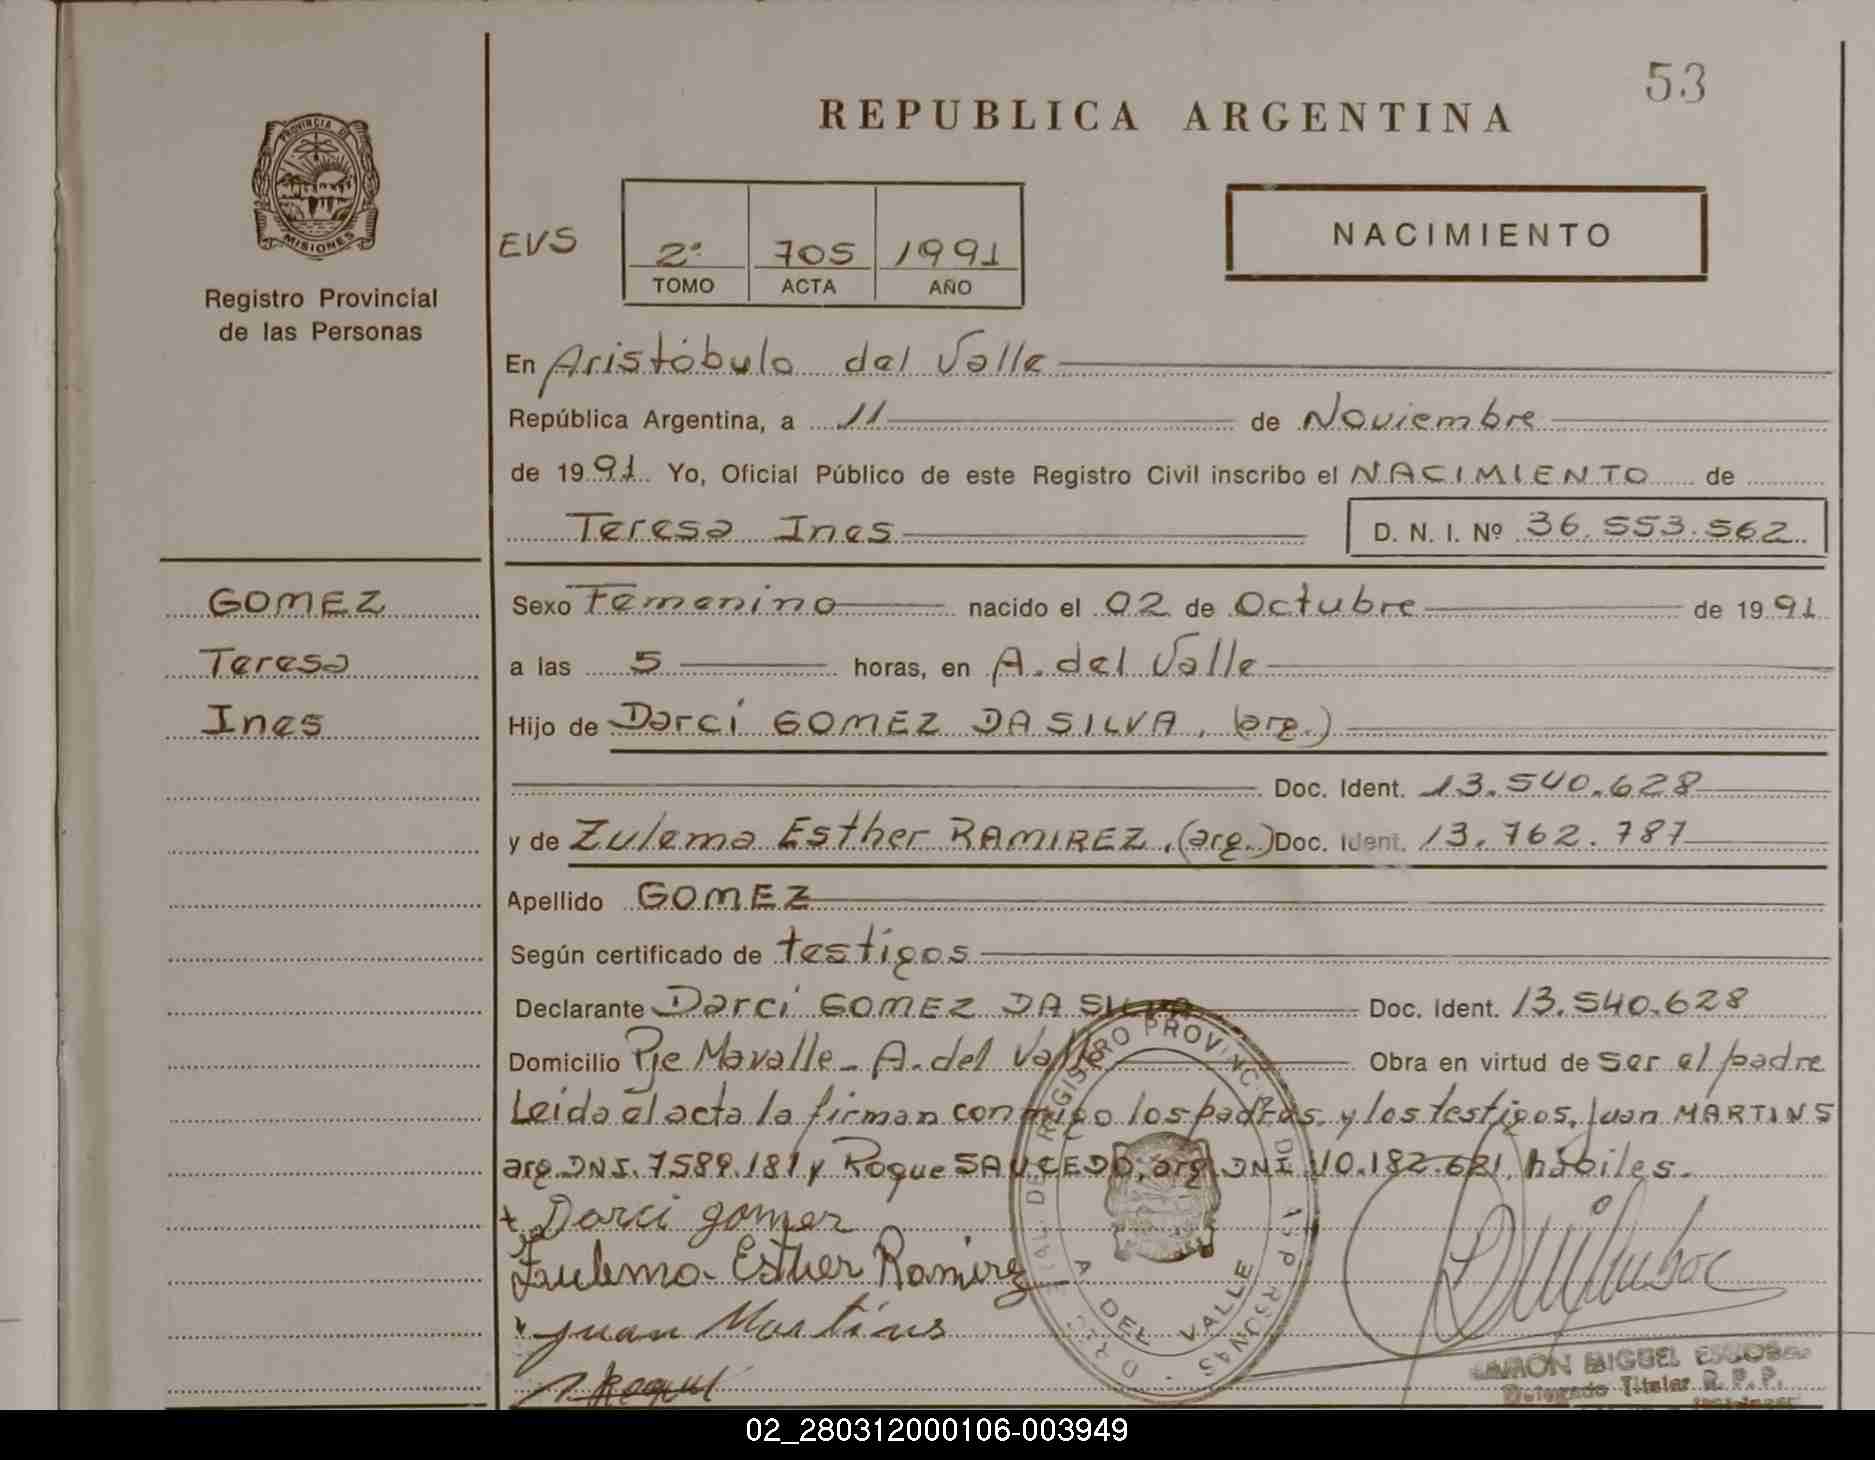 53
REPUBLICA ARGENTINA
PROVINCIA DE
MISIONES
Registro Provincial
de las Personas
EVS
2º 705 1991
TOMO ACTA AÑO
NACIMIENTO
En Aristóbulo del Valle
República Argentina, a 11 de Noviembre
de 1991 Yo, Oficial Público de este Registro Civil inscribo el NACIMIENTO de
Teresa Ines D. N. I. Nº 36.553.562.
GOMEZ
Teresa
Ines
Sexo Femenino nacido el 02 de Octubre de 1991
a las 5 horas, en A. del Valle
Hijo de Darci GOMEZ DA SILVA, (arg.)
Doc. Ident. 13.540.628
y de Zulema Esther RAMIREZ, (arg.) Doc. Ident. 13.762.787
Apellido GOMEZ
Según certificado de testigos
Declarante Darci GOMEZ DA SILVA Doc. Ident. 13.540.628
Domicilio Pje Mavalle - A. del Valle Obra en virtud de ser el padre
Leida el acta la firman conmigo los padres, y los testigos, Juan MARTINS
arg. DNI. 7589.181 y Roque SAUCEDO, arg. DNI 10.182.621, hábiles.
Darci gomez
Zulema Esther Ramirez
Juan Martins
Roque
REGISTRO PROVINCIAL DE
A. DEL VALLE
RAMON MIGUEL
Delegado Titular R. P. P.
02_280312000106-003949